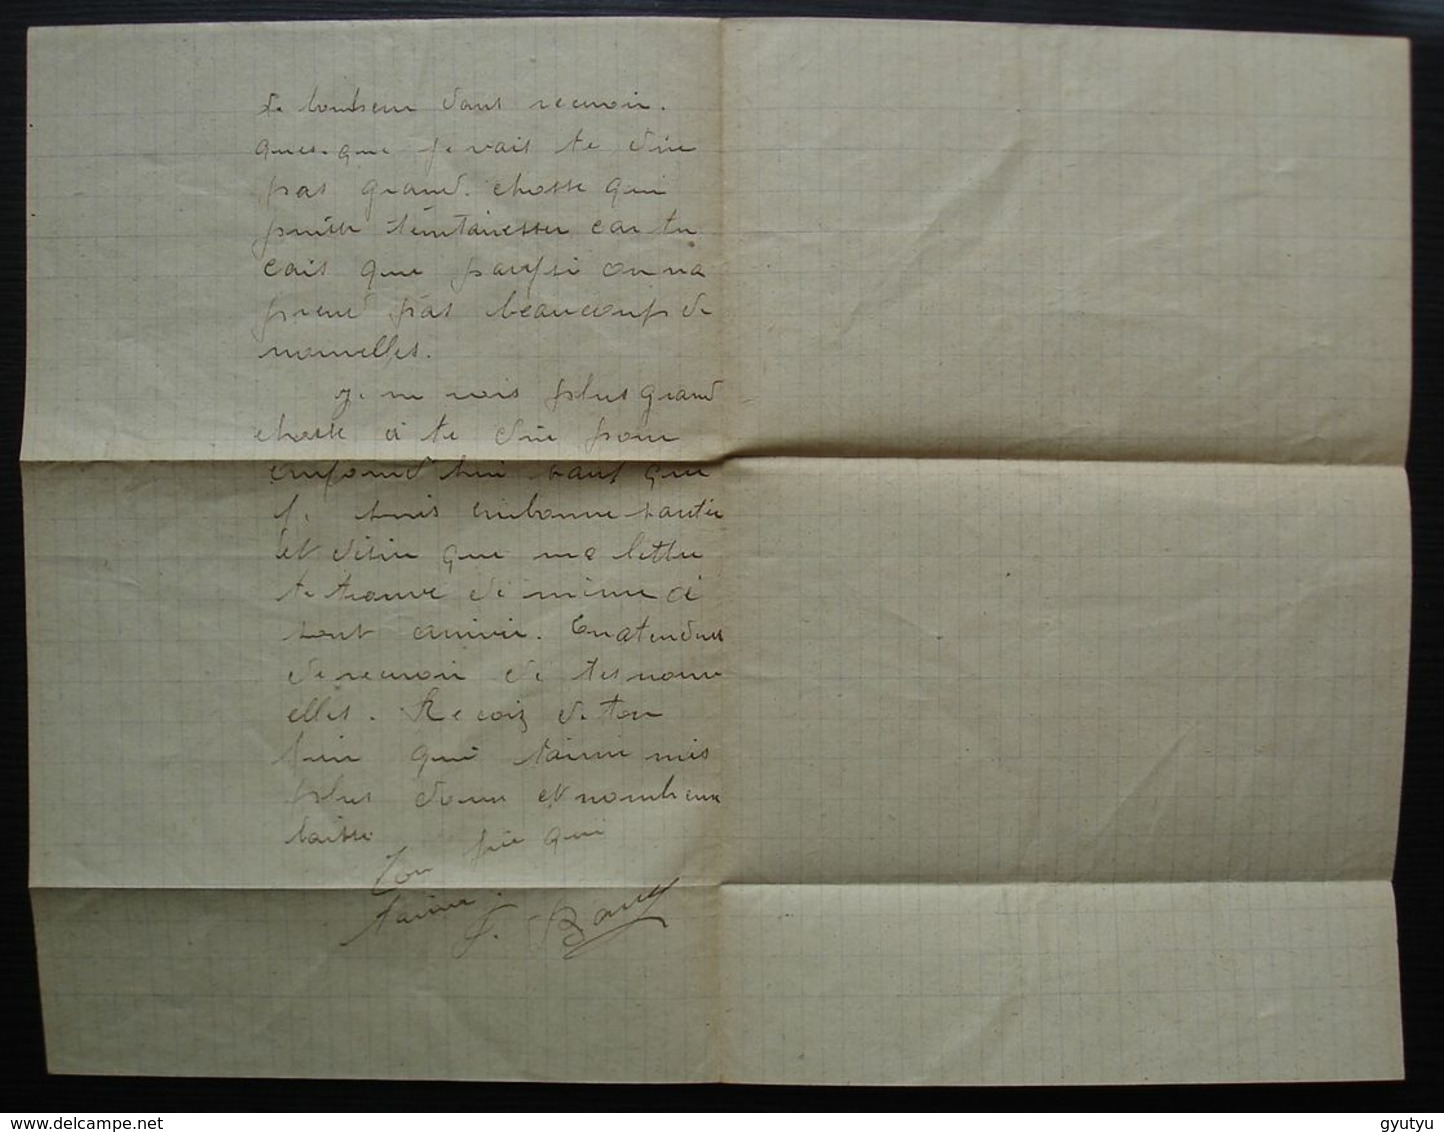 de bonheur dans recevoir.
ques-que je vait te dire
pas grand. chosse qui
puisse téintairesser car tu
cait que par isi on na
prend pas beaucoups de
nouvelles.
je ne vois plus grand
chosse à te dire pour
aujourd'hui sauf que
je suis en bonne santée
et désire que ma lettre
te trouve de même à
sont arrivée. En atendent
de recevoir de tes nouv
elles. Recoiz de ton
qui t'aime mes
plus doux et nombreux
baisse
Ton qui
t'aime. J.
gyutyu